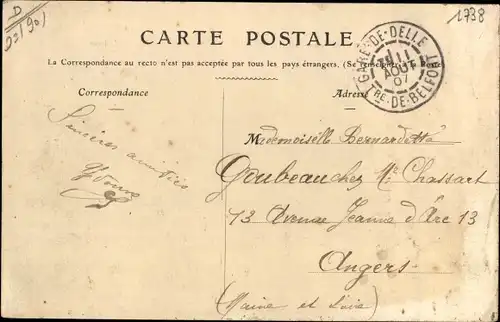 D
90 (90)
1738
CARTE POSTALE
La Correspondance au recto n'est pas acceptée par tous les pays étrangers. (Se renseigner à la Poste)
GARE-DE-DELLE
11
AOUT
07
TRE-DE-BELFORT
Correspondance
Adresse
Sincères amitiés
Mademoiselle Bernardette
Goubeau chez Me Chassart
13 Avenue Jeanne d'Arc 13
Angers
(Maine et Loire)